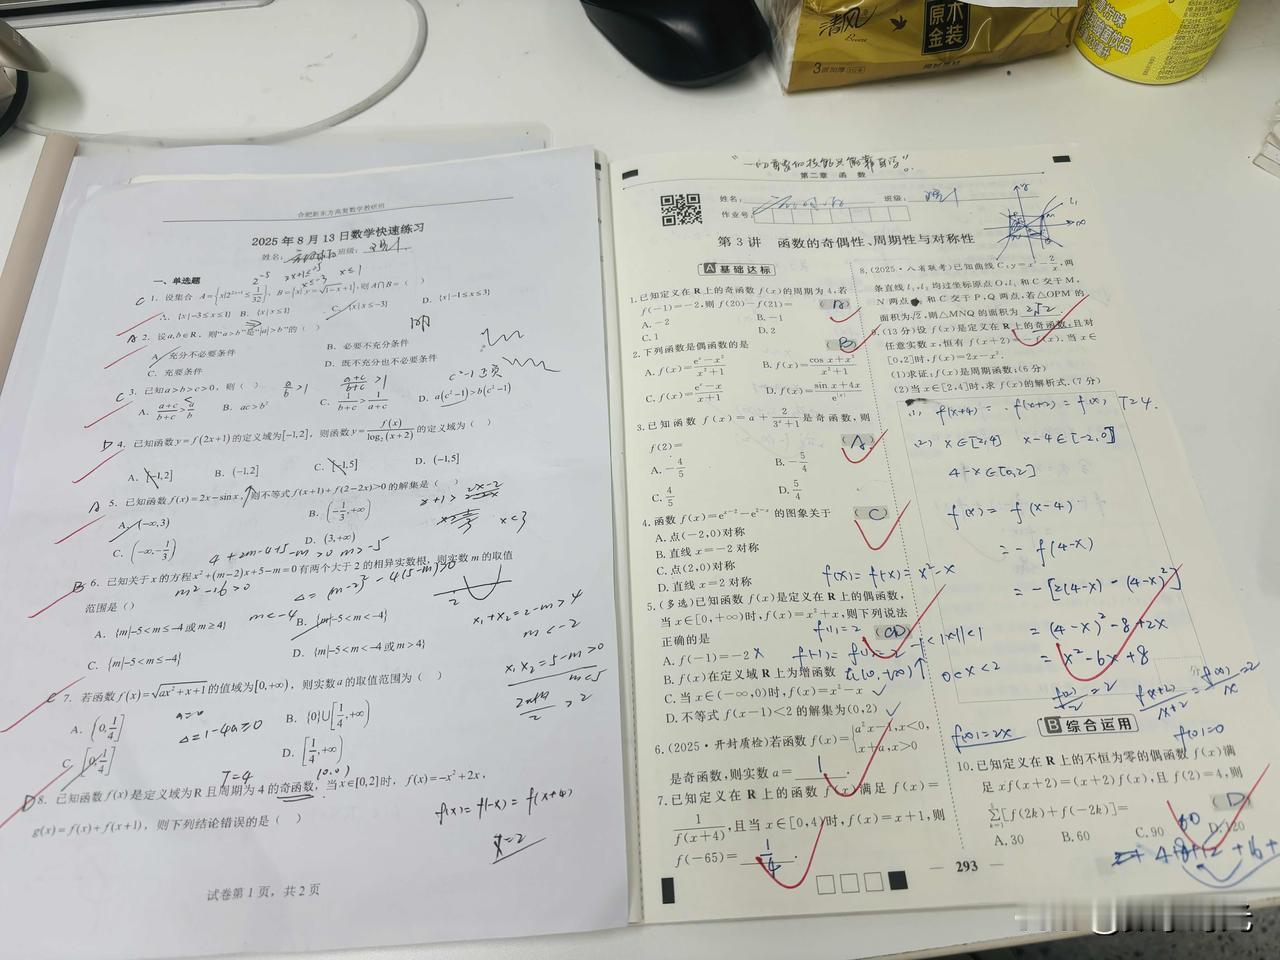 清风
原木
金装
合肥新东方高复数学教研组
2025 年 8 月 13 日数学快速练习
姓名： 班级：
一、单选题
2^{-5} 2x+1≤-5 x≤-3 x≤1
C 1. 设集合 A={x|2^{2x+1}≤1/32}, B={x|y=√(-x+1)}, 则 A∩B=（ ）
A. {x|-3≤x≤1} B. {x|x≤1} C. {x|x≤-3} D. {x|-1≤x≤3}
A 2. 设a,b∈R，则“a>b”是“|a|>b”的（ ）
A. 充分不必要条件 B. 必要不充分条件
C. 充要条件 D. 既不充分也不必要条件
C 3. 已知a>b>c>0，则（ ） a/b>1 (a+c)/(b+c)>1
A. (a+c)/(b+c)>a/b B. ac>b² C. 1/(b+c)>1/(a+c) D. a(c²-1)>b(c²-1)
D 4. 已知函数y=f(2x+1)的定义域为[-1,2]，则函数y=f(x)/log₂(x+2)的定义域为（ ）
A. [-1,2] B. (-1,2] C. [-1,5] D. (-1,5]
A 5. 已知函数f(x)=2x-sinx，则不等式f(x+1)+f(2-2x)>0的解集是（ ）
A. (-∞,3) B. (-1/3,+∞) x+1>2x-2
C. (-∞,-1/3) D. (3,+∞) x<3
4+2m-4+5-m>0 m>-5
B 6. 已知关于x的方程x²+(m-2)x+5-m=0有两个大于2的相异实数根，则实数m的取值
范围是（） m²-16>0 Δ=(m-2)²-4(5-m)>0
m<-4
A. {m|-5<m≤-4或m≥4} B. {m|-5<m<-4}
C. {m|-5<m≤-4} D. {m|-5<m<-4或m>4}
x₁+x₂=2-m>4
m<-2
x₁x₂=5-m>0
m<5
C 7. 若函数f(x)=√(ax²+x+1)的值域为[0,+∞)，则实数a的取值范围为（ ）
A. (0,1/4] a=0 B. {0}∪[1/4,+∞)
Δ=1-4a≥0
C. [0,1/4] D. [1/4,+∞)
T=4 (0,0)
D 8. 已知函数f(x)是定义域为R且周期为4的奇函数，当x∈[0,2]时，f(x)=-x²+2x，
g(x)=f(x)+f(x+1)，则下列结论错误的是（ ）
f(x)=f(-x)=f(x+4)
x=2
试卷第 1 页，共 2 页
第二章 函 数
姓名： 班级：
作业号：
第 3 讲 函数的奇偶性、周期性与对称性
A 基础达标
1.已知定义在R上的奇函数f(x)的周期为4,若
f(-1)=-2,则f(20)-f(21)=
A.-2 B.-1
C.1 D.2
2.下列函数是偶函数的是 ( B )
A.f(x)=(eˣ-x²)/(x²+1) B.f(x)=(cos x+x²)/(x²+1)
C.f(x)=(eˣ-x)/(x+1) D.f(x)=(sin x+4x)/e^{|x|}
3.已知函数f(x)=a+2/(3ˣ+1)是奇函数,则
f(2)= ( A )
A.-4/5 B.-5/4
C.4/5 D.5/4
4.函数f(x)=e^{x-2}-e^{2-x}的图象关于 ( C )
A.点(-2,0)对称
B.直线x=-2对称
C.点(2,0)对称
D.直线x=2对称
f(x)=f(-x)=x²-x
5.(多选)已知函数f(x)是定义在R上的偶函数,
当x∈[0,+∞)时,f(x)=x²+x,则下列说法
正确的是 f(1)=2 ( CD )
A.f(-1)=-2 × f(-1)=f(1)=2
B.f(x)在定义域R上为增函数
C.当x∈(-∞,0)时,f(x)=x²-x ✓
D.不等式f(x-1)<2的解集为(0,2) ✓
0<x<2
6.(2025·开封质检)若函数f(x)={a²x-1,x<0,
x+a,x>0
是奇函数,则实数a= 1 .
7.已知定义在R上的函数f(x)满足f(x)=
1/f(x+4),且当x∈[0,4)时,f(x)=x+1,则
f(-65)= 1/4 .
8.(2025·八省联考)已知曲线C:y=x³-2/x,两
条直线l₁,l₂均过坐标原点O,l₁和C交于M,
N两点,l₂和C交于P,Q两点,若△OPM的
面积为√2,则△MNQ的面积为 2√2 .
9.(13分)设f(x)是定义在R上的奇函数,且对
任意实数x,恒有f(x+2)=-f(x).当x∈
[0,2]时,f(x)=2x-x².
(1)求证:f(x)是周期函数;(6分)
(2)当x∈[2,4]时,求f(x)的解析式.(7分)
(1) f(x+4)=-f(x+2)=f(x) T=4.
(2) x∈[2,4] x-4∈[-2,0]
4-x∈[0,2]
f(x)=f(x-4)
=-f(4-x)
=-[2(4-x)-(4-x)²]
=(4-x)²-8+2x
=x²-6x+8
B 综合运用
f(x)=2x
10.已知定义在R上的不恒为零的偶函数f(x)满
足xf(x+2)=(x+2)f(x),且f(2)=4,则
∑[f(2k)+f(-2k)]= ( D )
A.30 B.60 C.90 D.120
293